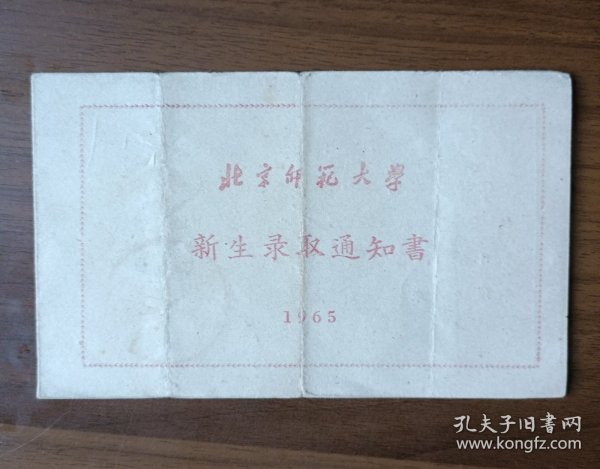 北京师范大學
新生录取通知書
1965
孔夫子旧书网
www.kongfz.com